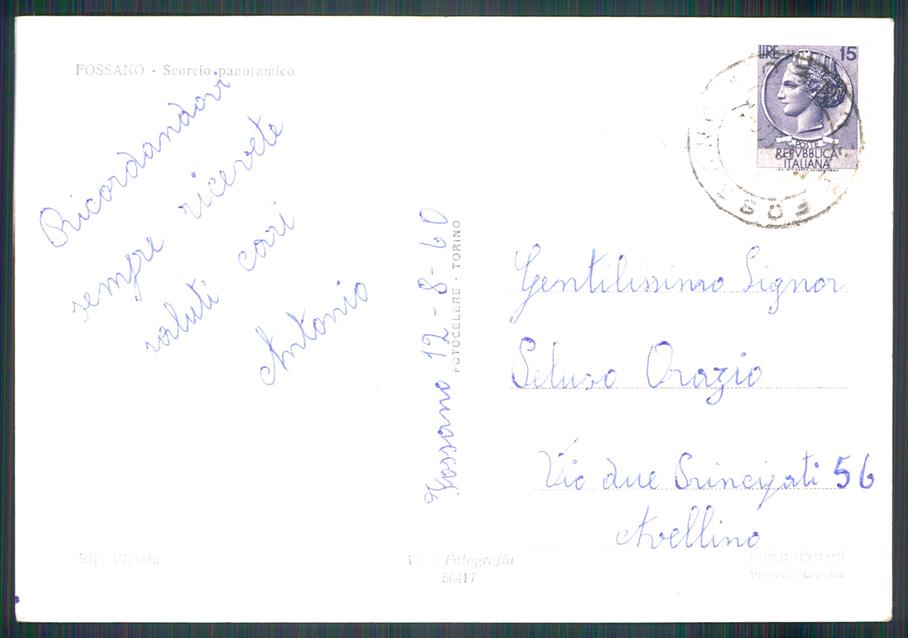 FOSSANO - Scorcio panoramico
Ricordandovi
sempre ricevete
saluti cari
Antonio
Fossano 12-8-60
FOTOCELERE - TORINO
LIRE 15
POSTE
REPVBBLICA
ITALIANA
Gentilissimo Signor
Orazio
Via due Principati 56
Avellino
Vera Fotografia
56417